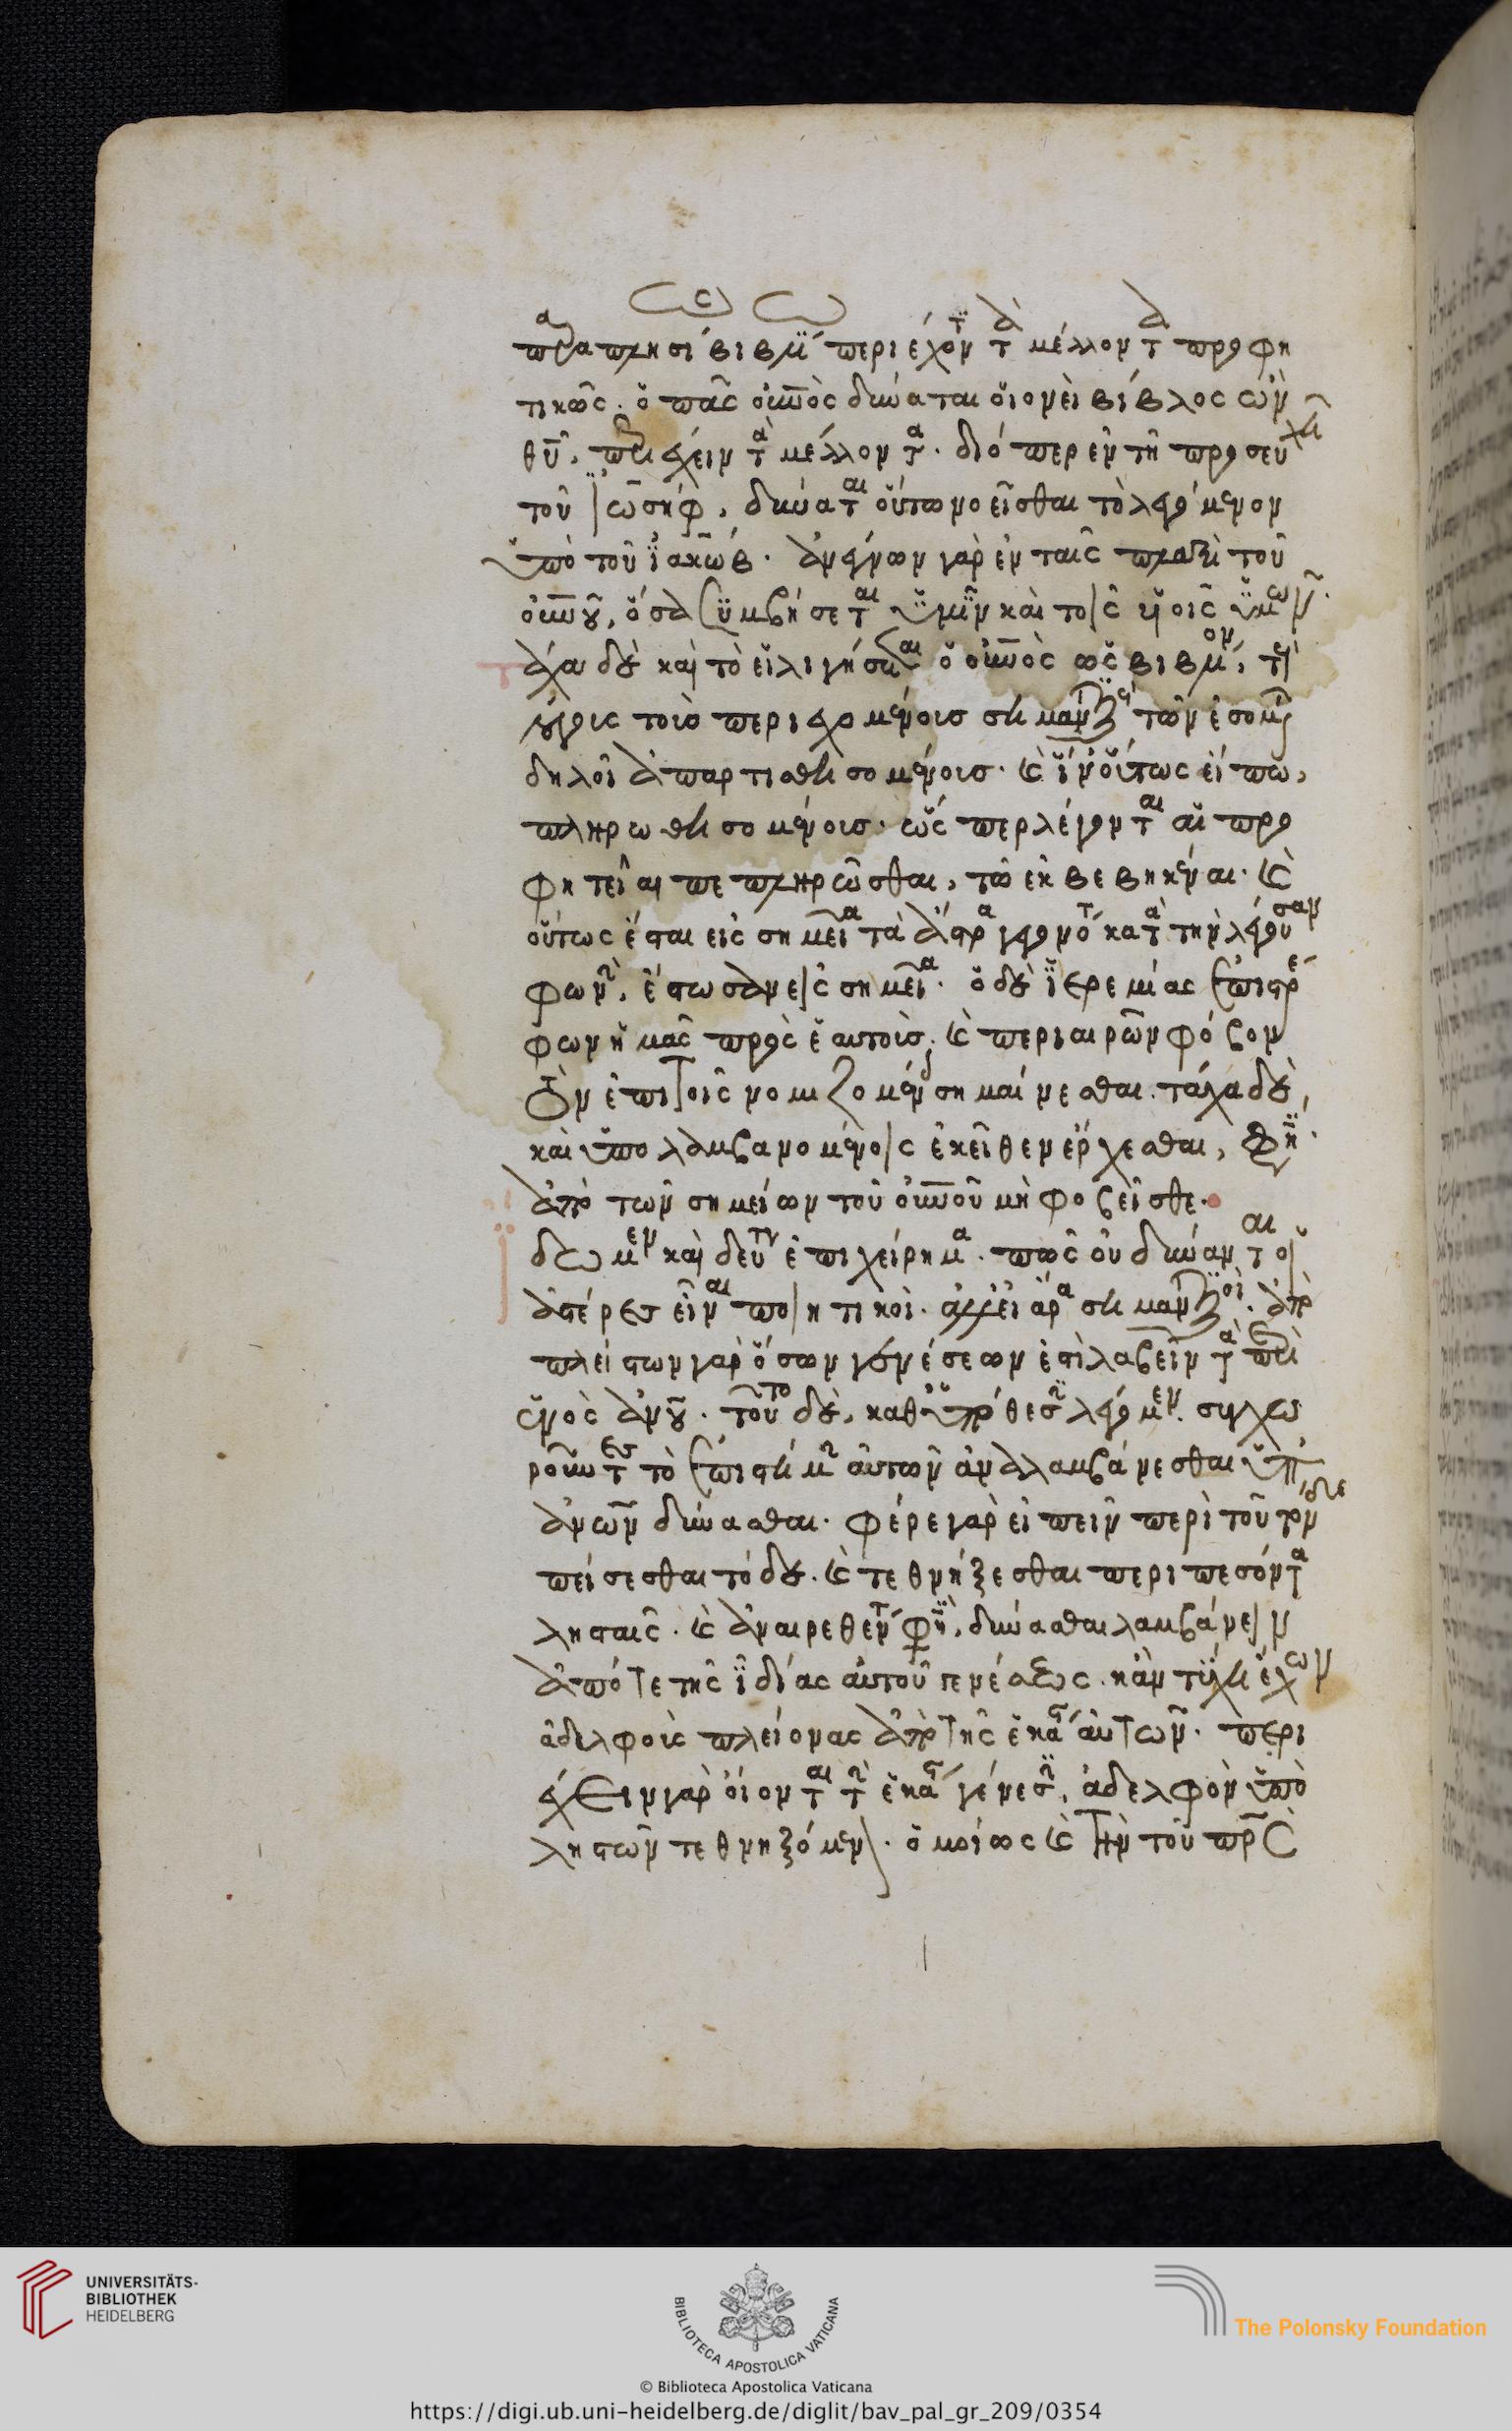 παραπλησί βιβλί περιέχοντ τὰ μέλλοντα προφη
τικῶς. ὁ πᾶς οὐνὸς δύναται οἱονεὶ βίβλος ὢν
θυ, περιέχειν τὰ μέλλοντα. διόπερ ἐν τῇ προσευχῇ
τοῦ ἰωσὴφ, δύναται οὕτω νοεῖσθαι τὸ λεγόμενον
ὑπὸ τοῦ ἰακώβ. ἀνέγνων γὰρ ἐν ταῖς πλαξὶ τοῦ
οὐνοῦ, ὅσα συμβήσεται ὑμῖν καὶ τοῖς υἱοῖς ὑμῶν.
τάχα δὲ καὶ τὸ εἱλιγήσεται ὁ οὐνὸς ὡς βιβλίον,
λόγους τοὺς περιεχομένους σημαντικοὺς τῶν ἐσομένων
δηλοῖ ἀπαρτισθησομένους. καὶ ἵν οὕτως εἴπω,
πληρωθησομένους. ὥσπερ λέγονται αἱ προ
φητεῖαι πεπληρῶσθαι, τῷ ἐκβεβηκέναι. καὶ
οὕτως ἔσται εἰς σημεῖα τὰ ἄστρα γεγονότα κατὰ τὴν λέγουσαν
φωνὴν, ἔστωσαν εἰς σημεῖα. ὁ δὲ ἱερεμίας ἐπιστρέ
φων ἡμᾶς πρὸς ἑαυτοὺς, καὶ περιαιρῶν φόβον
τὸν ἐπὶ τοῖς νομιζομένοις σημαίνεσθαι. τάχα δὲ,
καὶ ὑπολαμβανομένοις ἐκεῖθεν ἔρχεσθαι, φησὶ.
ἀπὸ τῶν σημείων τοῦ οὐνοῦ μὴ φοβεῖσθε.
ἴδωμεν καὶ δεύτερον ἐπιχείρημα. πῶς οὐ δύνανται οἱ
ἀστέρες εἶναι ποιητικοὶ. ἀλλ εἰ ἄρα σημαντικοί. ἀπὸ
πλείστων γὰρ ὅσων γενέσεων ἔστι λαβεῖν τὰ περὶ
ἑνὸς ἀνου. τοῦτο δὲ, καθ ὑπόθεσιν λέγομεν. συγχω
ροῦντες τὸ ἐπιστήμην αὐτῶν ἀναλαμβάνεσθαι ὑπ
ἀνων δύνασθαι. φέρε γὰρ εἰπεῖν περὶ τοῦ τόνδε
πείσεσθαι τόδε. καὶ τεθνήξεσθαι περιπεσόντα
λησταῖς. καὶ ἀναιρεθέντα φησὶ, δύνασθαι λαμβάνειν
ἀπό τε τῆς ἰδίας αὐτοῦ γενέσεως. κἂν τύχῃ ἔχων
ἀδελφοὺς πλείονας ἀπὸ τῆς ἑκάστου αὐτῶν. περι
έχειν γὰρ οἴονται τὴν ἑκάστου γένεσιν, ἀδελφὸν ὑπὸ
ληστῶν τεθνηξόμενον. ὁμοίως καὶ τὴν τοῦ πρς
UNIVERSITÄTS-
BIBLIOTHEK
HEIDELBERG
BIBLIOTECA APOSTOLICA VATICANA
The Polonsky Foundation
© Biblioteca Apostolica Vaticana
https://digi.ub.uni-heidelberg.de/diglit/bav_pal_gr_209/0354